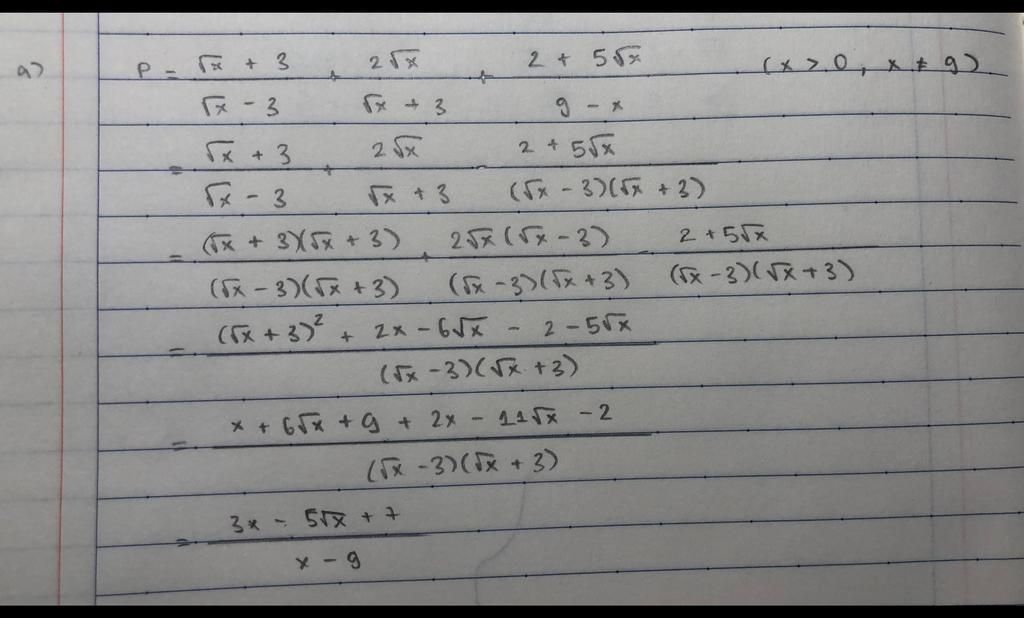 a) P = (√x + 3)/(√x - 3) + 2√x/(√x + 3) + (2 + 5√x)/(9 - x) (x > 0, x ≠ 9)
= (√x + 3)/(√x - 3) + 2√x/(√x + 3) - (2 + 5√x)/((√x - 3)(√x + 3))
= ((√x + 3)(√x + 3))/((√x - 3)(√x + 3)) + (2√x(√x - 3))/((√x - 3)(√x + 3)) - (2 + 5√x)/((√x - 3)(√x + 3))
= ((√x + 3)² + 2x - 6√x - 2 - 5√x)/((√x - 3)(√x + 3))
= (x + 6√x + 9 + 2x - 11√x - 2)/((√x - 3)(√x + 3))
= (3x - 5√x + 7)/(x - 9)